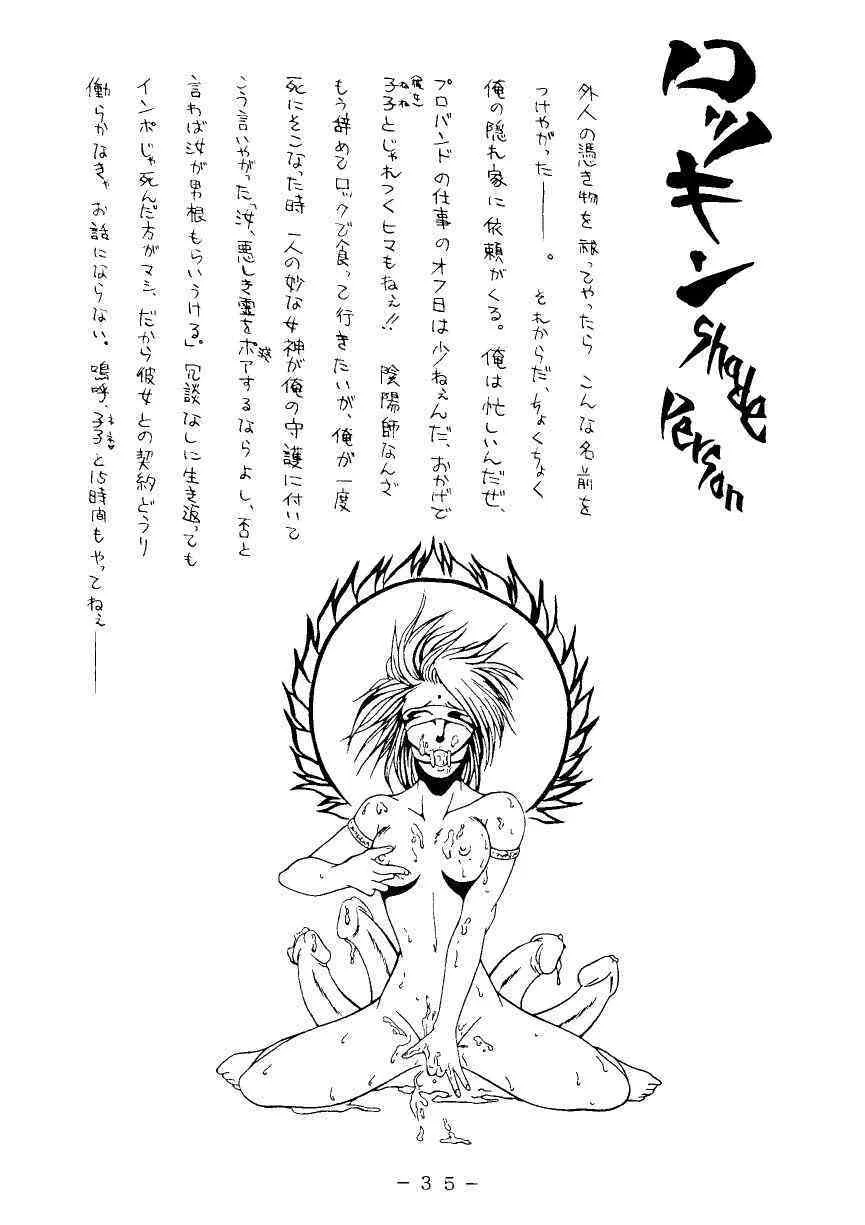 ロッキン
Shade
Person
外人の憑き物を祓ってやったら こんな名前を
つけやがった――。 それからだ、ちょくちょく
俺の隠れ家に依頼がくる。俺は忙しいんだぜ、
プロバンドの仕事のオフ日は少ねぇんだ、おかげで
子子とじゃれつくヒマもねぇ!! 陰陽師なんざ
ねね
もう辞めてロックで食って行きたいが、俺が一度
死にそこなった時 一人の妙な女神が俺の守護に付いて
こう言いやがった「汝、悪しき霊をポアするならよし、否と
言わば汝が男根もらいうける」冗談なしに生き返っても
インポじゃ死んだ方がマシ、だから彼女との契約どうり
働らかなきゃ お話にならない。嗚呼、子子と15時間もやってねぇ――
ネネ
-35-